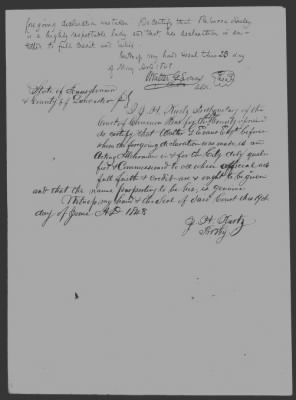 foregoing declaration was taken I certify that Rebecca
is a highly respectable lady and that her declaration is en-
titled to full credit and belief.
Witness my hand this 23 day
of May
Walter G Evans
Ald.
State of Pennsylvania
County of Lancaster } SS
I J. H. Kurtz Prothonotary of the
Court of Common Pleas for the County aforesaid
do certify that Walter G Evans Esqr before
whom the foregoing declaration was made is an
Acting Alderman in & for the City duly quali-
fied & Commissioned to all whose official acts
full faith & credit are & ought to be given
and that the name purporting to be his, is genuine
Witness my hand & the Seal of said Court this
day of June AD 1868
J. H. Kurtz
Prothy